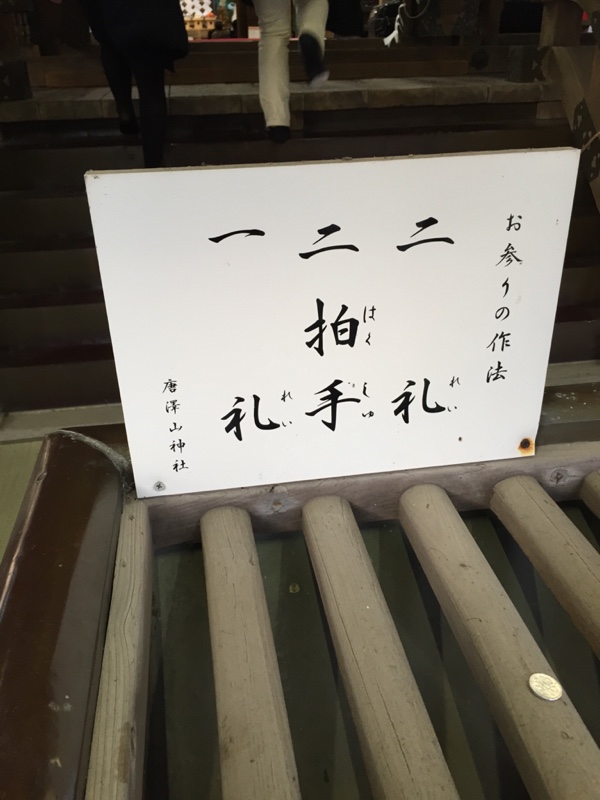 お参りの作法
二礼
れい
二拍手
はくしゅ
一礼
れい
唐澤山神社